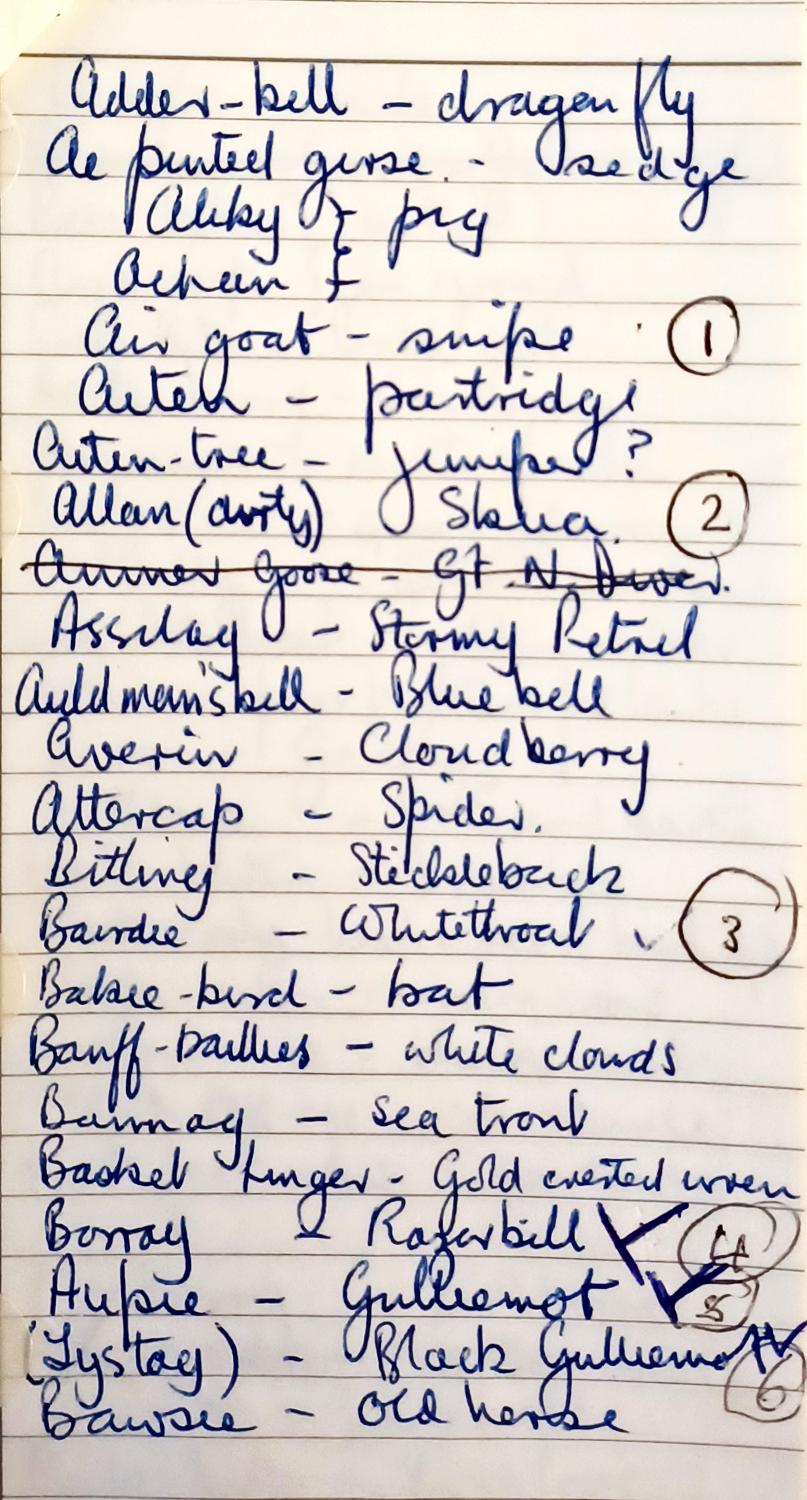 Adder-bell - dragon fly
Ae pinted girse. - sedge
Akky } pig
Ackein }
Air goat - snipe 1
Aiten - partridge
Aiten-tree - juniper ?
Allan (dirty) Skua. 2
Ammer Goose - Gt. N. Diver.
Assilag - Stormy Petrel
Auld man's bell - Blue bell
Averin - Cloudberry
Attercap - Spider.
Bitling - Stickleback
Bairdie - Whitethroat ✓ 3
Bakie-bird - bat
Banff-baillies - white clouds
Bannag - sea trout
Basket hinger - Gold crested wren
Borray - Razorbill ✓ 4
Aupie - Guillemot ✓ 5
(Tystag) - Black Guillemot ✓ 6
Bawsie - old horse